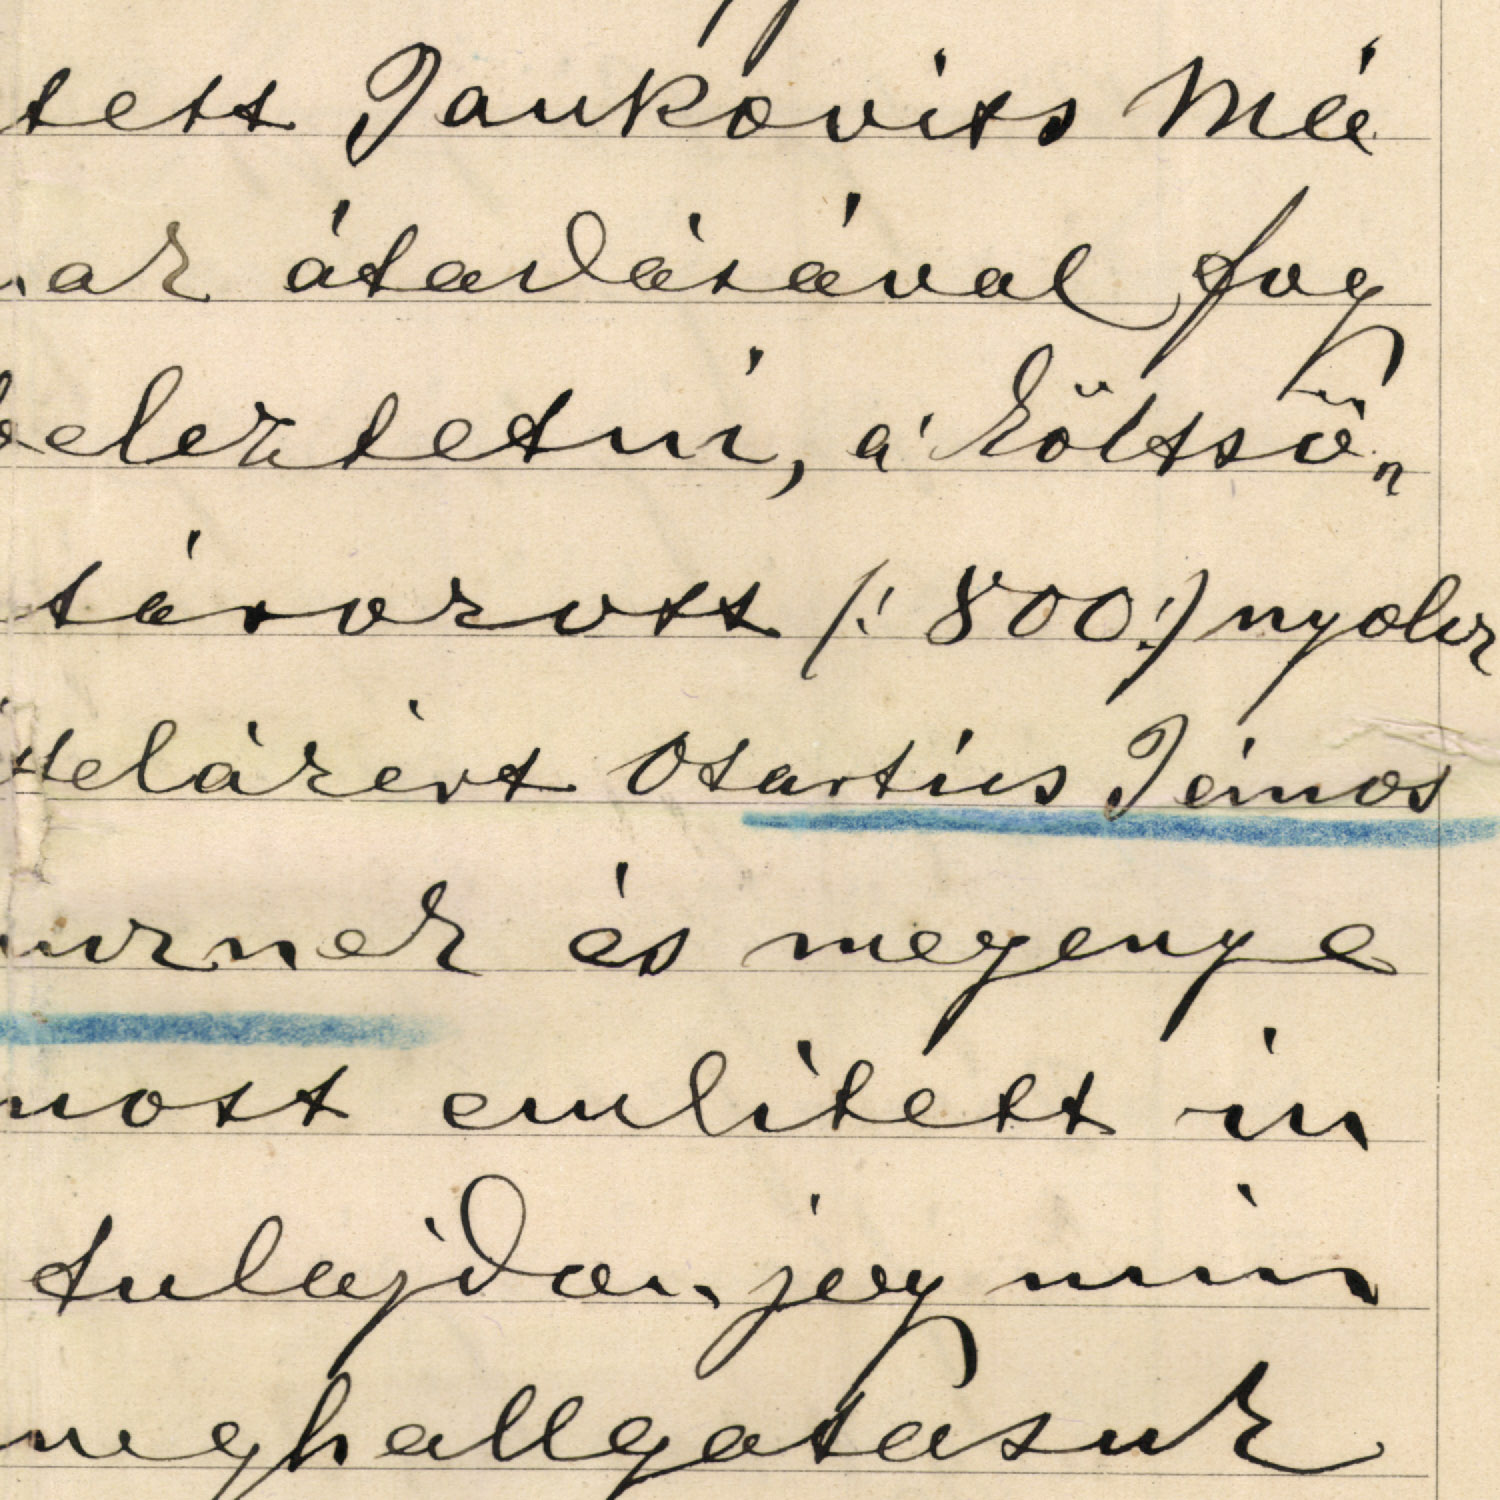 tett Jankovits Mi
nak átadásával fog
beleztetni, a' költsön
tásoroxott (: 800 :) nyolcz
telárért Osartius János
urnak és megenge
most emlitett in
tulajdon jog min
meghallgatásuk